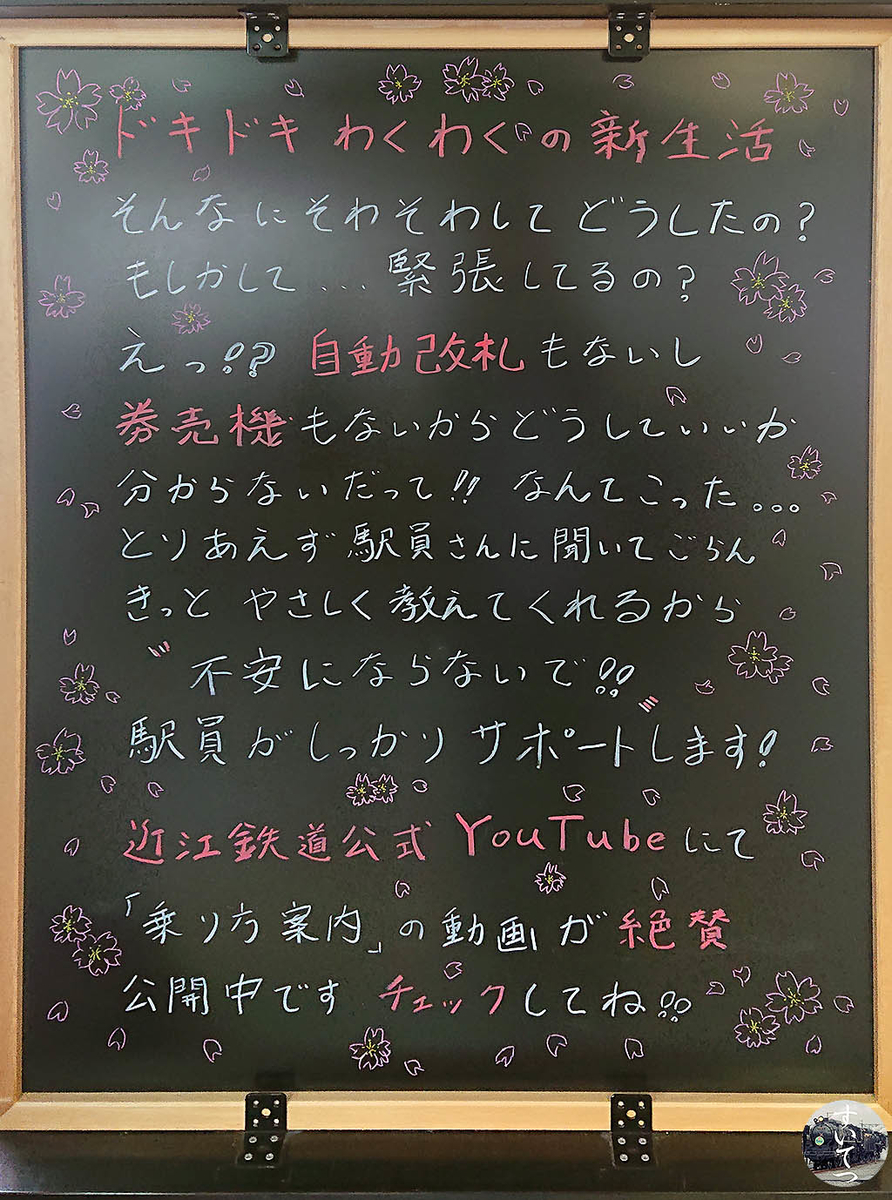 ドキドキ わくわくの新生活
そんなにそわそわして どうしたの?
もしかして...緊張してるの?
えっ!? 自動改札もないし
券売機もないからどうしていいか
分からないだって!! なんてこった...
とりあえず駅員さんに聞いてごらん
きっと やさしく教えてくれるから
不安にならないで!!
駅員がしっかりサポートします!
近江鉄道公式 YouTubeにて
「乗り方案内」の動画が絶賛
公開中です チェックしてね!!
すいてつ